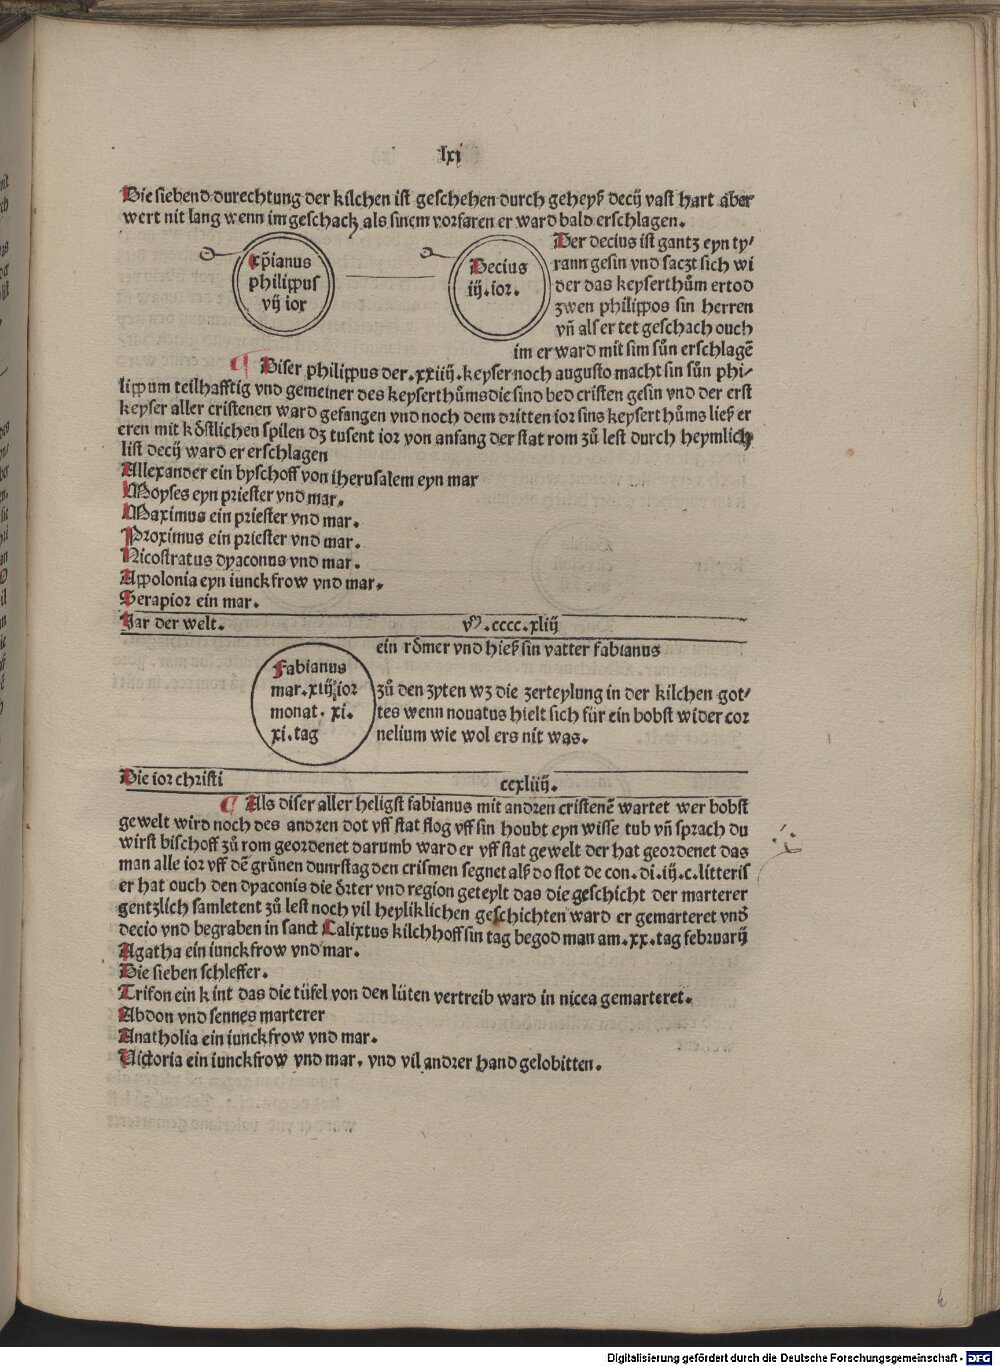 lxi
Die siebend durechtung der kilchen ist geschehen durch geheyß decij vast hart aber
wert nit lang wenn im geschach als sinem vorfaren er ward bald erschlagen.
xp̄ianus
philippus
vij ior
Decius
iij. ior.
Der decius ist gantz eyn ty/
rann gesin vnd saczt sich wi
der das keyserthům ertod
zwen philippos sin herren
vn̄ als er tet geschach ouch
im er ward mit sim sůn erschlagē
¶ Diser philippus der .xxiiij. keyser noch augusto macht sin sůn phi/
lippum teilhafftig vnd gemeiner des keyserthůms die sind bed cristen gesin vnd der erst
keyser aller cristenen ward gefangen vnd noch dem dritten ior sins keyserthůms ließ er
eren mit kőstlichen spilen dz tusent ior von anfang der stat rom zů lest durch heymlich
list decij ward er erschlagen
Allexander ein byschoff von iherusalem eyn mar
Moyses eyn priester vnd mar.
Maximus ein priester vnd mar.
Proximus ein priester vnd mar.
Nicostratus dyaconus vnd mar.
Appolonia eyn iunckfrow vnd mar.
Serapior ein mar.
Jar der welt. vͫ.cccc.xliij
ein rőmer vnd hieß sin vatter fabianus
Fabianus
mar. xiij ior
monat. xi.
xi. tag
zů den zyten wz die zerteylung in der kilchen got/
tes wenn nouatus hielt sich für ein bobst wider cor
nelium wie wol ers nit was.
Die ior christi ccxliiij.
¶ Als diser aller heligst fabianus mit andren cristenē wartet wer bobst
gewelt wird noch des andren dot vff stat flog vff sin houbt eyn wisse tub vn̄ sprach du
wirst bischoff zů rom geordenet darumb ward er vff stat gewelt der hat geordenet das
man alle ior vff dē grůnen dunrstag den crismen segnet alß do stot de con. di. iij. c. litteris
er hat ouch den dyaconis die őrter vnd region geteylt das die geschicht der marterer
gentzlich samletent zů lest noch vil heyliklichen geschichten ward er gemarteret vnd
decio vnd begraben in sanct Calixtus kilchhoff sin tag begod man am .xx. tag februarij
Agatha ein iunckfrow vnd mar.
Die sieben schleffer.
Trifon ein kint das die tüfel von den lüten vertreib ward in nicea gemarteret.
Abdon vnd sennes marterer
Anatholia ein iunckfrow vnd mar.
Victoria ein iunckfrow vnd mar. vnd vil andrer hand gelobitten.
Digitalisierung gefördert durch die Deutsche Forschungsgemeinschaft - DFG